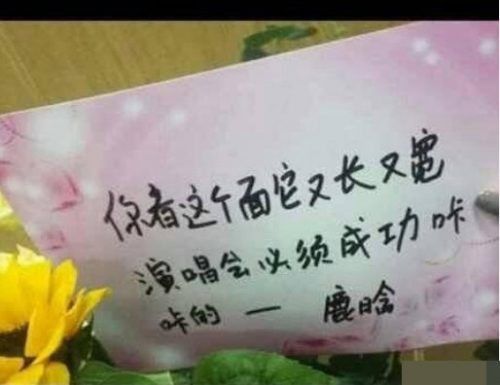 你看这个面它又长又宽
演唱会必须成功咔
咔的 — 鹿晗